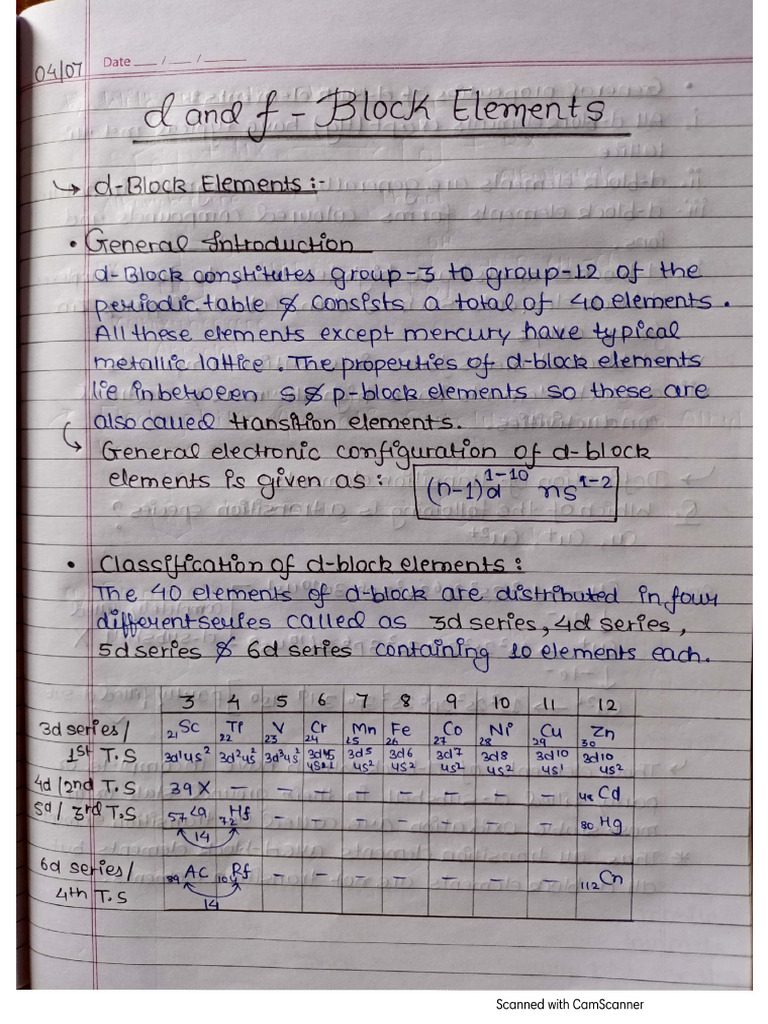 04/07 Date __ / __ / __
d and f - Block Elements
↳ d-Block Elements :-
• General Introduction
d-Block constitutes group-3 to group-12 of the
periodic table & consists a total of 40 elements.
All these elements except mercury have typical
metallic lattice. The properties of d-block elements
lie inbetween s & p-block elements so these are
also called transition elements.
↳ General electronic configuration of d-block
elements is given as: (n-1)d¹⁻¹⁰ ns¹⁻²
• Classification of d-block elements:
The 40 elements of d-block are distributed in four
different series called as 3d series, 4d series,
5d series & 6d series containing 10 elements each.
3 4 5 6 7 8 9 10 11 12
3d series/ ₂₁Sc ₂₂Ti ₂₃V ₂₄Cr ₂₅Mn ₂₆Fe ₂₇Co ₂₈Ni ₂₉Cu ₃₀Zn
1st T.S 3d¹4s² 3d²4s² 3d³4s² 3d⁵ 3d5 3d6 3d7 3d8 3d10 3d10
4s² 4s2 4s2 4s2 4s¹ 4s2
4d/2nd T.S 39 X – – – – – – – – ₄₈Cd
5d/3rd T.S ₅₇La ₇₂Hf – – – – – – – ₈₀Hg
14
6d series/ ₈₉AC ₁₀₄Rf – – – – – – – ₁₁₂Cn
4th T.S 14
Scanned with CamScanner